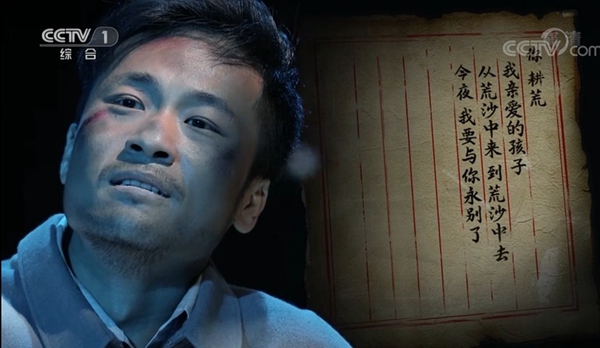 CCTV 1
综合
CCTV.com
你 耕荒
我亲爱的孩子
从荒沙中来到荒沙中去
今夜 我要与你永别了